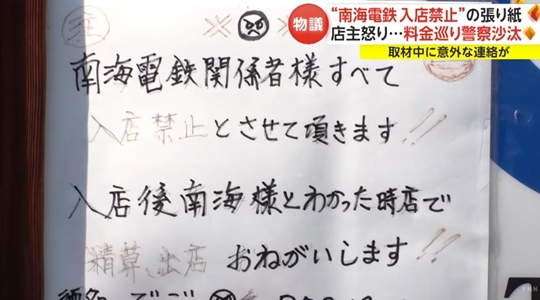 物議
“南海電鉄 入店禁止”の張り紙
店主怒り…料金巡り警察沙汰
取材中に意外な連絡が
南海電鉄関係者様すべて
入店禁止とさせて頂きます!!
入店後南海様とわかった時店で
精算、出店 おねがいします!!